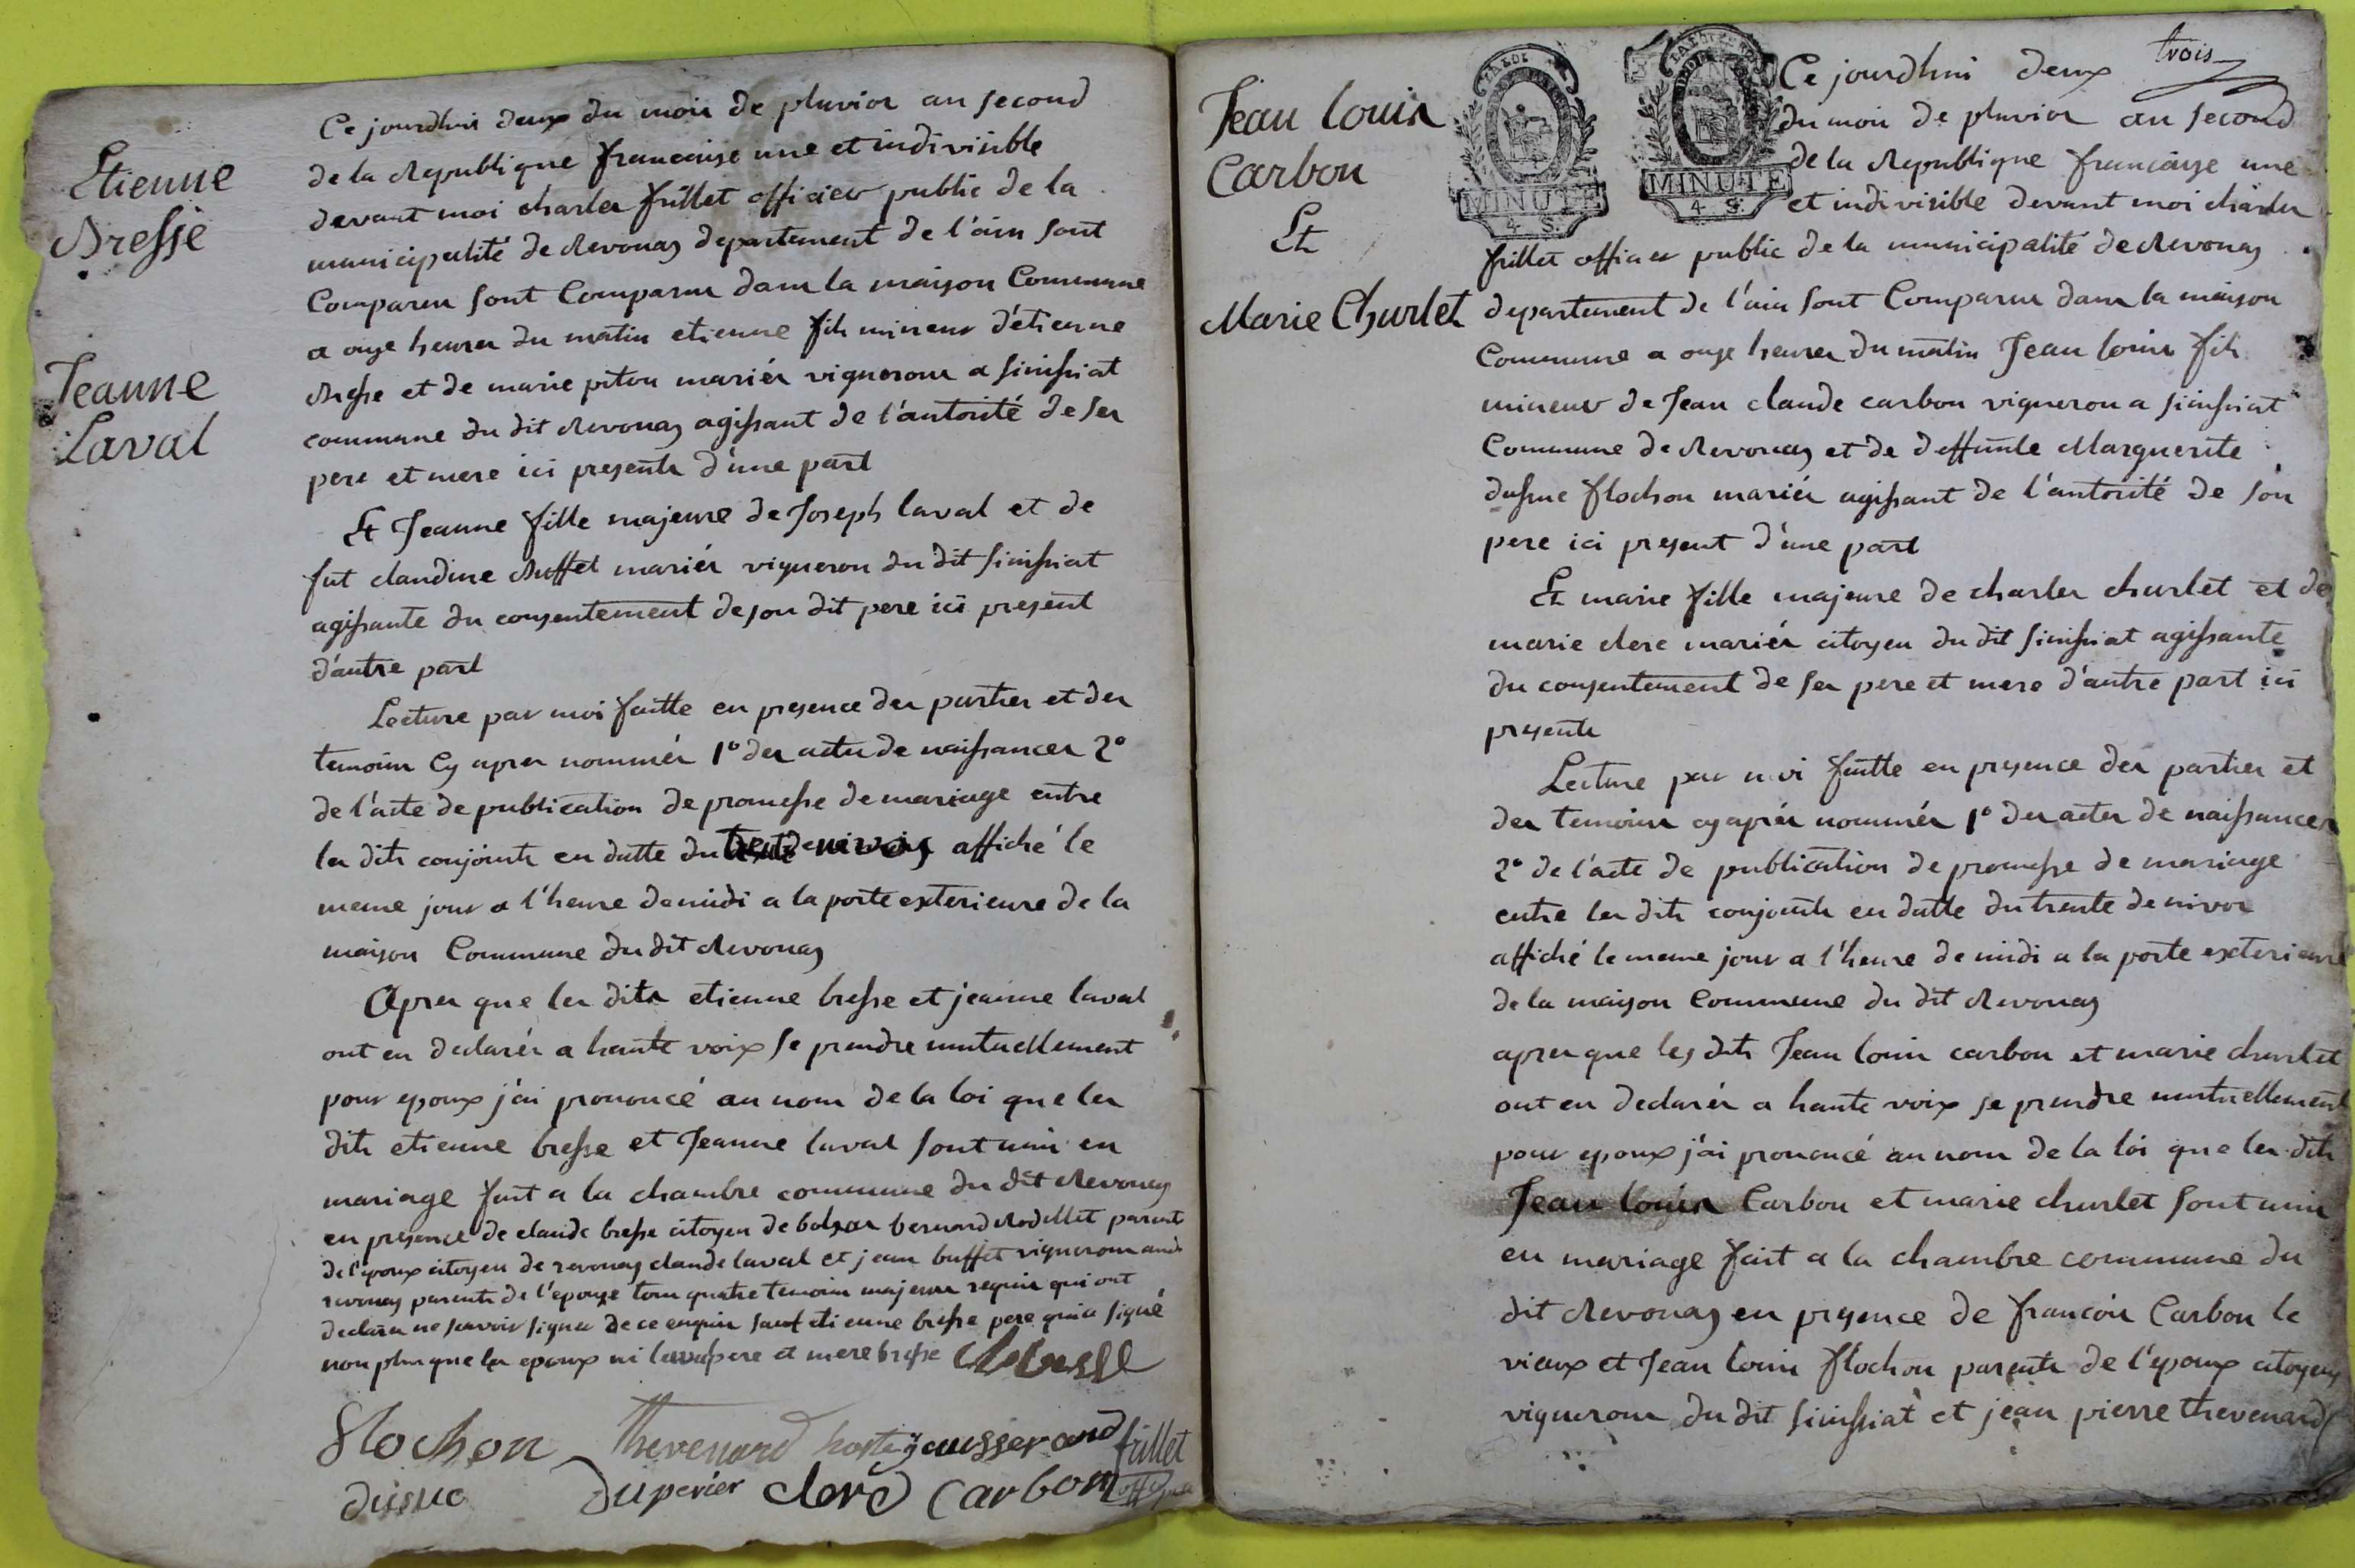 Etienne
Bresse
Jeanne
Laval
Ce jourdhui deux du mois de pluvios an second
de la Republique francaise une et indivisible
devant moi charles frillet officier public de la
municipalité de Revonas departement de l'ain sont
Comparus sont Comparus dans la maison Commune
a onze heures du matin etienne fils mineur d'étienne
Bresse et de marie piton mariés vignerons a simissiat
commune du dit Revonas agissant de l'autorité de ses
pere et mere ici presents d'une part
Et Jeanne fille majeure de Joseph laval et de
fut claudine Buffet mariés vigneron du dit simissiat
agissante du consentement de son dit pere ici present
d'autre part
Lecture par moi faitte en presence des parties et des
temoins Cy apres nommés 1° des actes de naissances 2°
de l'acte de publication de promesse de mariage entre
les dits conjoints en datte du trente de nivos affiché le
meme jour a l'heure de midi a la porte exterieure de la
maison Commune du dit Revonas
Apres que les dits etienne bresse et jeanne laval
ont eu declarés a haute voix se prendre mutuellement
pour epoux j'ai prononcé au nom de la loi que les
dits etienne bresse et Jeanne laval sont unis en
mariage fait a la chambre commune du dit Revonas
en presence de claude bresse citoyen de bernard Rodillet parents
de l'epoux citoyen de revonas claude laval et jean buffet vignerons
revonas parents de l'epouse tous quatre temoins majeurs requis qui ont
declarés ne scavoir signer de ce enquis sauf etienne bresse pere qui a signé
non plus que les epoux ni laval pere et mere bresse
flochon Thevenard gausserand frillet
dusuc duperier clerc Carbon
trois
Jean louis
Carbon
Et
Marie Churlet
MINUTE
4. S.
MINUTE
4. S.
Ce jourdhui deux
du mois de pluvios an second
de la Republique francaise une
et indivisible devant moi charles
frillet officier public de la municipalité de Revonas
departement de l'ain sont Comparus dans la maison
Commune a onze heures du matin Jean louis fils
mineur de Jean claude carbon vigneron a simissiat
Commune de Revonas et de deffunte Marguerite
dusuc flochon mariés agissant de l'autorité de son
pere ici present d'une part
Et marie fille majeure de charles churlet et de
marie clerc mariés citoyen du dit simissiat agissante
du consentement de ses pere et mere d'autre part ici
presents
Lecture par moi faitte en presence des parties et
des temoins cy aprés nommés 1° des actes de naissances
2° de l'acte de publication de promesse de mariage
entre les dits conjoints en datte du trente de nivos
affiché le meme jour a l'heure de midi a la porte exterieure
de la maison Commune du dit Revonas
apres que les dits Jean louis carbon et marie churlet
ont eu declarés a haute voix se prendre mutuellement
pour epoux j'ai prononcé au nom de la loi que les dits
Jean louis Carbon et marie churlet sont unis
en mariage fait a la chambre commune du
dit Revonas en presence de francois Carbon le
vieux et Jean louis flochon parents de l'epoux citoyens
vignerons du dit simissiat et jean pierre thevenard